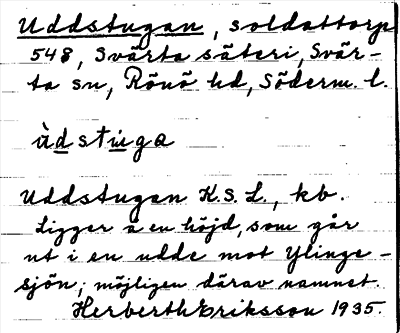 Uddstugan, soldattorp
548, Svärta säteri, Svär-
ta sn, Rönö hd, Söderm. l.
ùdstuga
Uddstugan K.S.L., kb.
Ligger å en höjd, som går
ut i en udde mot Ylinge-
sjön, möjligen därav namnet.
Herberth Eriksson 1935.